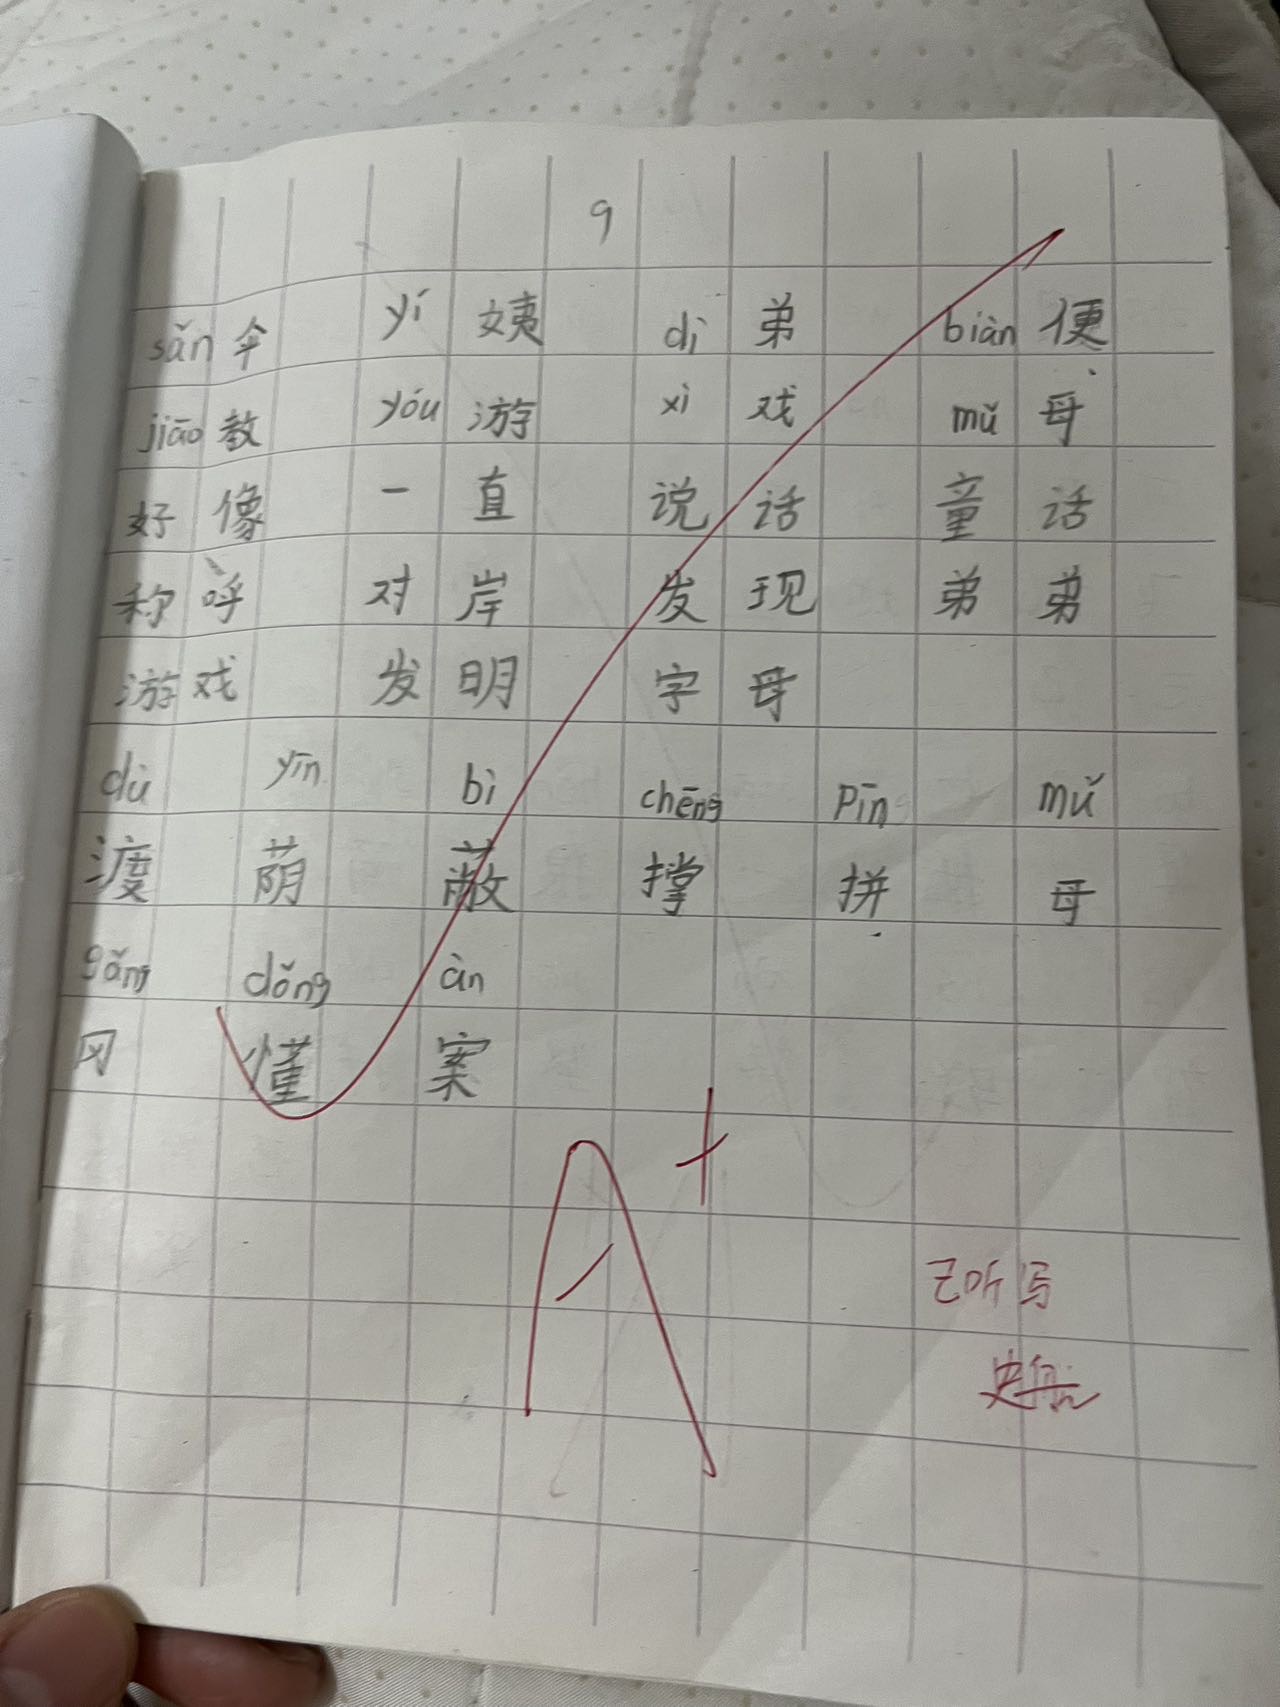 9
sǎn 伞 yí 姨 dì 弟 biàn 便
jiāo 教 yóu 游 xì 戏 mǔ 母
好像 一直 说话 童话
称呼 对岸 发现 弟弟
游戏 发明 字母
dù yīn bì chēng pīn mǔ
渡 荫 蔽 撑 拼 母
gǎng dǒng àn
冈 懂 案
A+
已听写